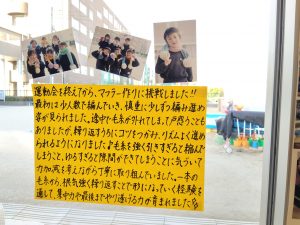 運動会を終えてから、マフラー作りに挑戦しました!!
最初は少人数で編んでいき、慎重に少しずつ編み進める
姿が見られました。途中で毛糸が外れてしまい戸惑うことも
ありましたが、繰り返すうちにコツをつかみ、リズムよく進め
られるようになりました♪毛糸を強く引きすぎると縮んで
しまうこと、ゆるすぎると隙間ができてしまうことに気づいて
力加減を考えながら丁寧に取り組んでいました。一本の
毛糸から、根気強く繰り返すことで形になっていく経験を
通して、集中力や最後までやり遂げる力が育まれました!!